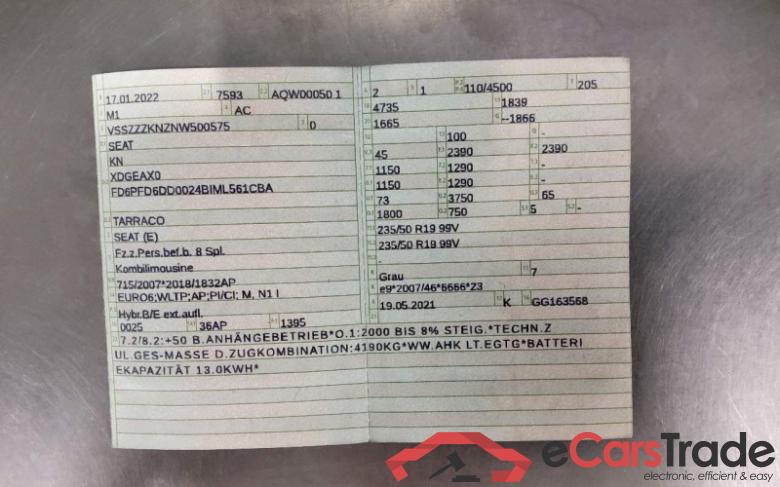 17.01.2022 7593 AQW00050 1
M1 AC
VSSZZZKNZNW500575 0
SEAT
KN
XDGEAX0
FD6PFD6DD0024BIML561CBA
TARRACO
SEAT (E)
Fz.z.Pers.bef.b. 8 Spl.
Kombilimousine
715/2007*2018/1832AP
EURO6;WLTP;AP;PI/CI; M, N1 I
Hybr.B/E ext.aufl.
0025 36AP 1395
2 1 110/4500 205
4735 1839
1665 --1866
100 -
45 2390 2390
1150 1290 -
1150 1290 -
73 3750 65
1800 750 5 -
235/50 R19 99V
235/50 R19 99V
-
Grau 7
e9*2007/46*6666*23
19.05.2021 K GG163568
7.2/8.2:+50 B.ANHÄNGEBETRIEB*O.1:2000 BIS 8% STEIG.*TECHN.Z
UL.GES-MASSE D.ZUGKOMBINATION:4190KG*WW.AHK LT.EGTG*BATTERI
EKAPAZITÄT 13.0KWH*
eCarsTrade
electronic, efficient & easy